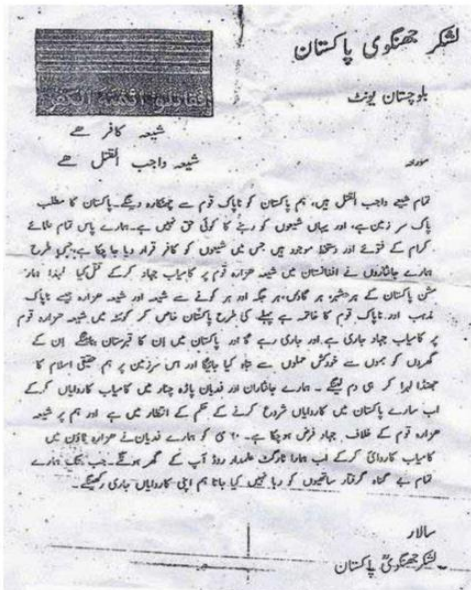 لشکر جھنگوی پاکستان
بلوچستان یونٹ
فقاتلو ائمتہ الکفر
شیعہ کافر ھے
شیعہ واجب القتل ھے
مورخہ
تمام شیعے واجب القتل ہیں، ہم پاکستان کو ناپاک قوم سے چھٹکارہ دینگے۔ پاکستان کا مطلب
پاک سر زمین ہے، اور یہاں شیعوں کو رہنے کا کوئی حق نہیں ہے۔ ہمارے پاس تمام علمائے
کرام کے فتوئے اور دستخط موجود ہیں جس میں شیعوں کو کافر قرار دیا جا چکا ہے۔ جس طرح
ہمارے جانثاروں نے افغانستان میں شیعہ ھزارہ قوم پر کامیاب جہاد کرکے قتل کیا لہذا ہمارا
مشن پاکستان کے ہر شہر، ہر گاؤں، ہر جگہ اور ہر کونے سے شیعہ اور شیعہ ھزارہ جیسے ناپاک
مذہب اور ناپاک قوم کا خاتمہ ہے پہلے کی طرح پاکستان خاص کر کوئٹہ میں شیعہ ھزارہ قوم
پر کامیاب جہاد جاری ہے اور جاری رہے گا اور پاکستان میں ان کا قبرستان بنائینگے ان کے
گھروں کو بموں سے خودکش حملوں سے تباہ کیا جائیگا اور اس سرزمین پر ہم حقیقی اسلام کا
جھنڈا لہرا کر ہی دم لینگے۔ ہمارے جانثاران اور فدیان پاڑہ چنار میں کامیاب کاروایاں کرکے
اب سارے پاکستان میں کاروایاں شروع کرنے کے حکم کے انتظار میں ہے اور ہم پر شیعہ
ھزارہ قوم کے خلاف جہاد فرض ہوچکا ہے۔ ی کو ہمارے فدیان نے ھزارہ ٹاؤن میں
کامیاب کاروائی کرکے اب ہمارا ٹارگٹ علمدار روڈ آپ کے گھر ہونگے۔ جب تک ہمارے
تمام بے گناہ گرفتار ساتھیوں کو رہا نہیں کیا جاتا ہم اپنی کاروایاں جاری رکھینگے۔
سالار
لشکر جھنگویؒ پاکستان